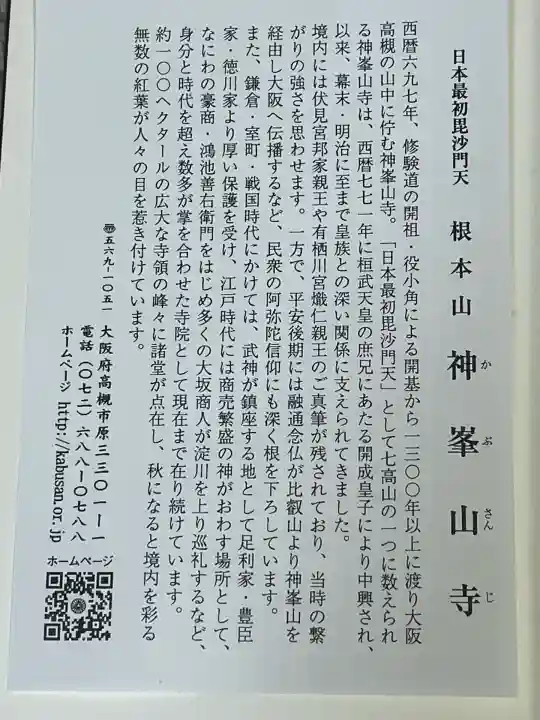 日本最初毘沙門天 根本山 神峯山寺
かぶさんじ
西暦六九七年、修験道の開祖・役小角による開基から一三〇〇年以上に渡り大阪
高槻の山中に佇む神峯山寺。「日本最初毘沙門天」として七高山の一つに数えられ
る神峯山寺は、西暦七七一年に桓武天皇の庶兄にあたる開成皇子により中興され、
以来、幕末・明治に至まで皇族との深い関係に支えられてきました。
境内には伏見宮邦家親王や有栖川宮熾仁親王のご真筆が残されており、当時の繋
がりの強さを思わせます。一方で、平安後期には融通念仏が比叡山より神峯山を
経由し大阪へ伝播するなど、民衆の阿弥陀信仰にも深く根を下ろしています。
また、鎌倉・室町・戦国時代にかけては、武神が鎮座する地として足利家・豊臣
家・徳川家より厚い保護を受け、江戸時代には商売繁盛の神がおわす場所として、
なにわの豪商・鴻池善右衛門をはじめ多くの大坂商人が淀川を上り巡礼するなど、
身分と時代を超え数多が掌を合わせた寺院として現在まで在り続けています。
約一〇〇ヘクタールの広大な寺領の峰々に諸堂が点在し、秋になると境内を彩る
無数の紅葉が人々の目を惹き付けています。
〠五六九-一〇五一 大阪府高槻市原三三〇一-一
電話(〇七二)六八八-〇七八八
ホームページ http://kabusan.or.jp
ホームページ